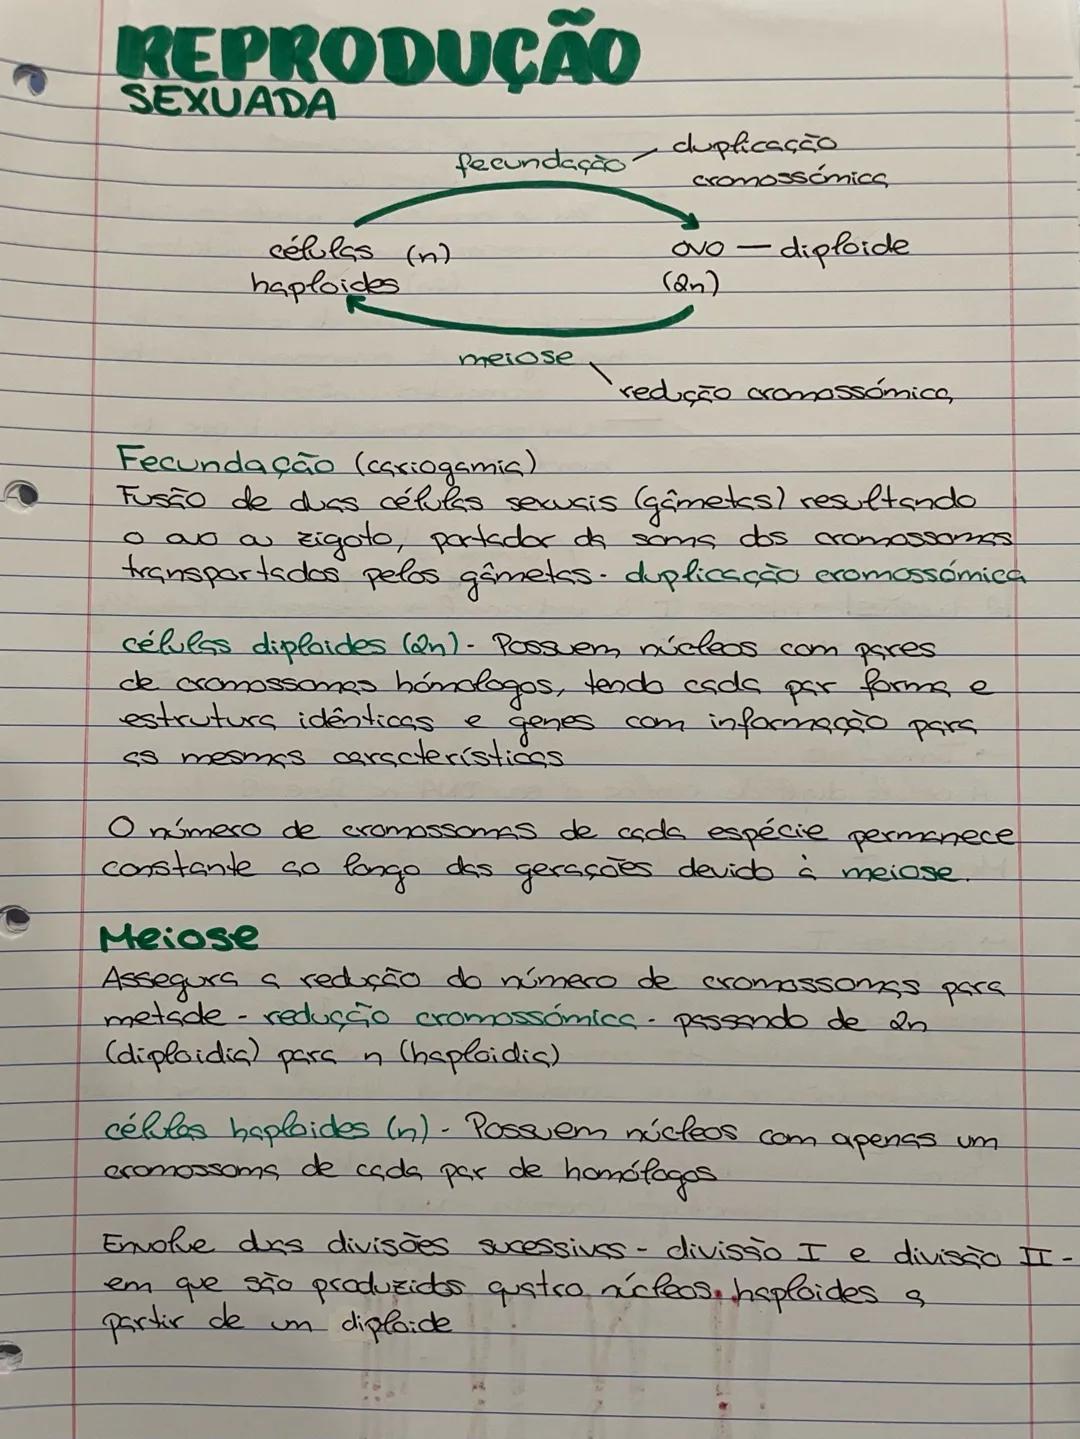 REPRODUÇÃO
SEXUADA
fecundação
duplicação
cromossómica
células (n)
haploides
ovo — diploide
(2n)
meiose
redução cromossómica
Fecundação (cariogamia)
Fusão de duas células sexuais (gâmetas) resultando
o ovo ou zigoto, portador da soma dos cromossomas
transportados pelos gâmetas - duplicação cromossómica
células diploides (2n) - Possuem núcleos com pares
de cromossomas homólogos, tendo cada par forma e
estrutura idênticas e genes com informação para
as mesmas características
O número de cromossomas de cada espécie permanece
constante ao longo das gerações devido à meiose.
Meiose
Assegura a redução do número de cromossomas para
metade - redução cromossómica - passando de 2n
(diploidia) para n (haploidia)
células haploides (n) - Possuem núcleos com apenas um
cromossoma de cada par de homólogos
Envolve duas divisões sucessivas - divisão I e divisão II -
em que são produzidos quatro núcleos haploides a
partir de um diploide